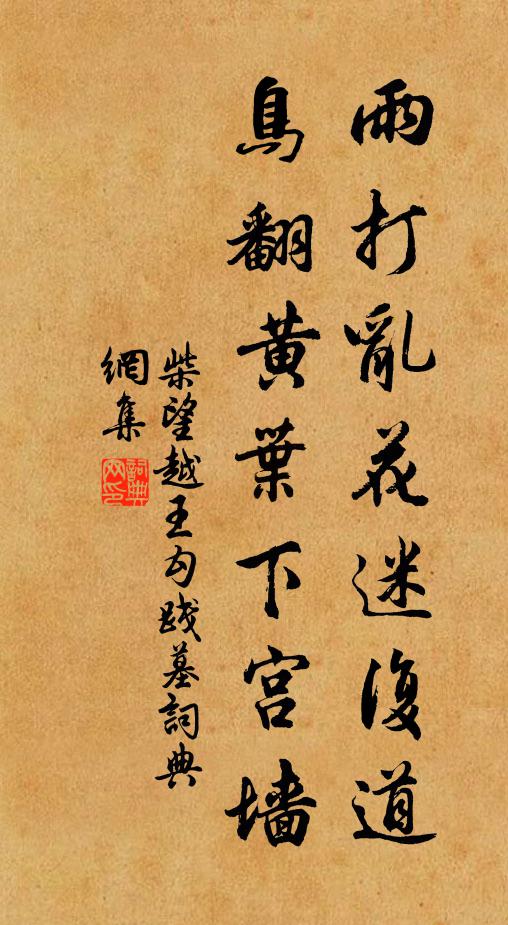 雨打亂花迷復道
鳥翻黃葉下宮墻
柴望越王勾踐墓詞典
網集
詞典
网印